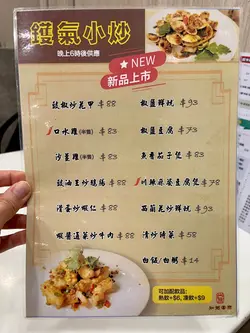 鑊氣小炒
晚上6時後供應
NEW
新品上市
豉椒炒花甲 $88
椒鹽鮮魷 $93
口水雞(半隻) $88
椒鹽豆腐 $73
沙薑雞(半隻) $88
魚香茄子煲 $83
豉油王炒鵝腸 $88
川辣麻婆豆腐煲 $78
滑蛋炒蝦仁 $88
西蘭花炒鮮魷 $93
蝦醬通菜炒牛肉 $88
清炒時菜 $58
白飯/白粥 $14
可加配飲品:
熱飲+$6, 凍飲+$9